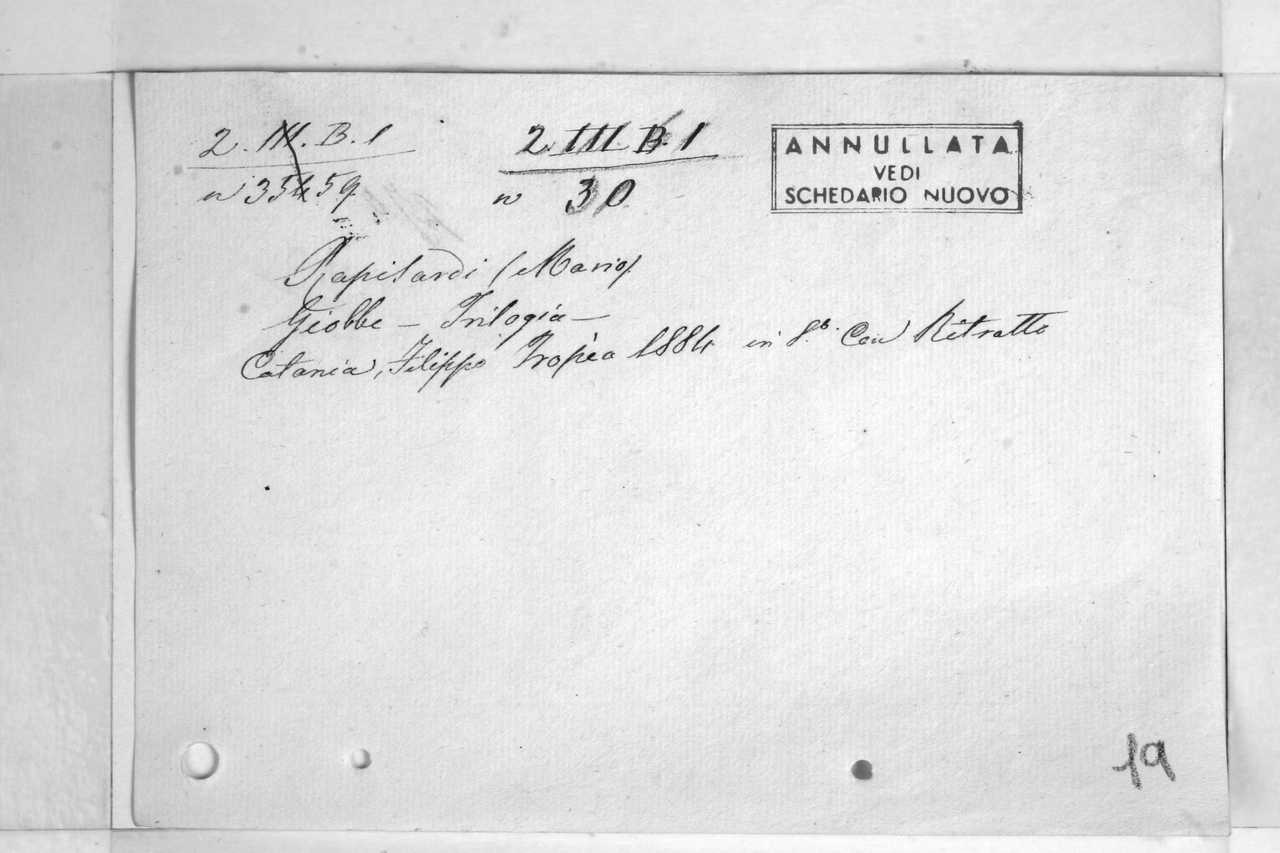 2. III. B. 1
n 35459
2 III. B. 1
n 30
ANNULLATA
VEDI
SCHEDARIO NUOVO
Rapisardi (Mario)
Giobbe — Trilogia —
Catania, Filippo Tropèa 1884 in 8.° Con Ritratto
19